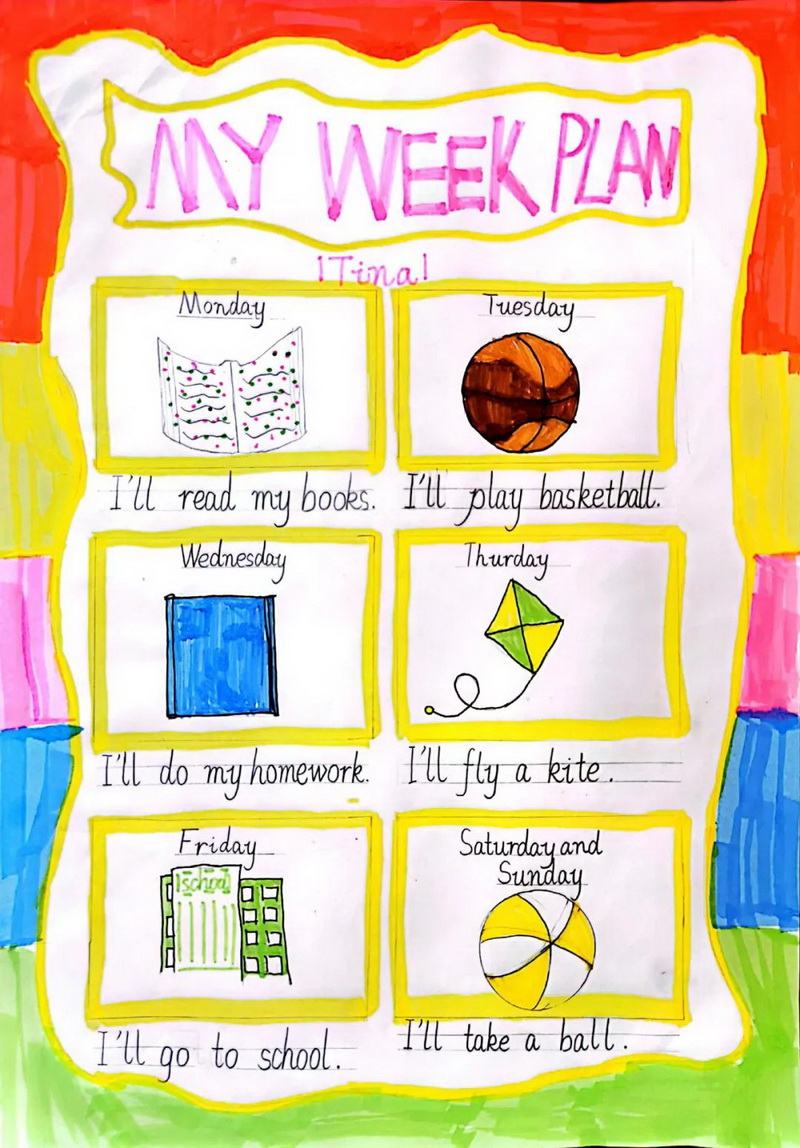 MY WEEK PLAN
!Tina!
Monday
Tuesday
I'll read my books.
I'll play basketball.
Wednesday
Thurday
I'll do my homework.
I'll fly a kite.
Friday
Saturday and
Sunday
school
I'll go to school.
I'll take a ball.